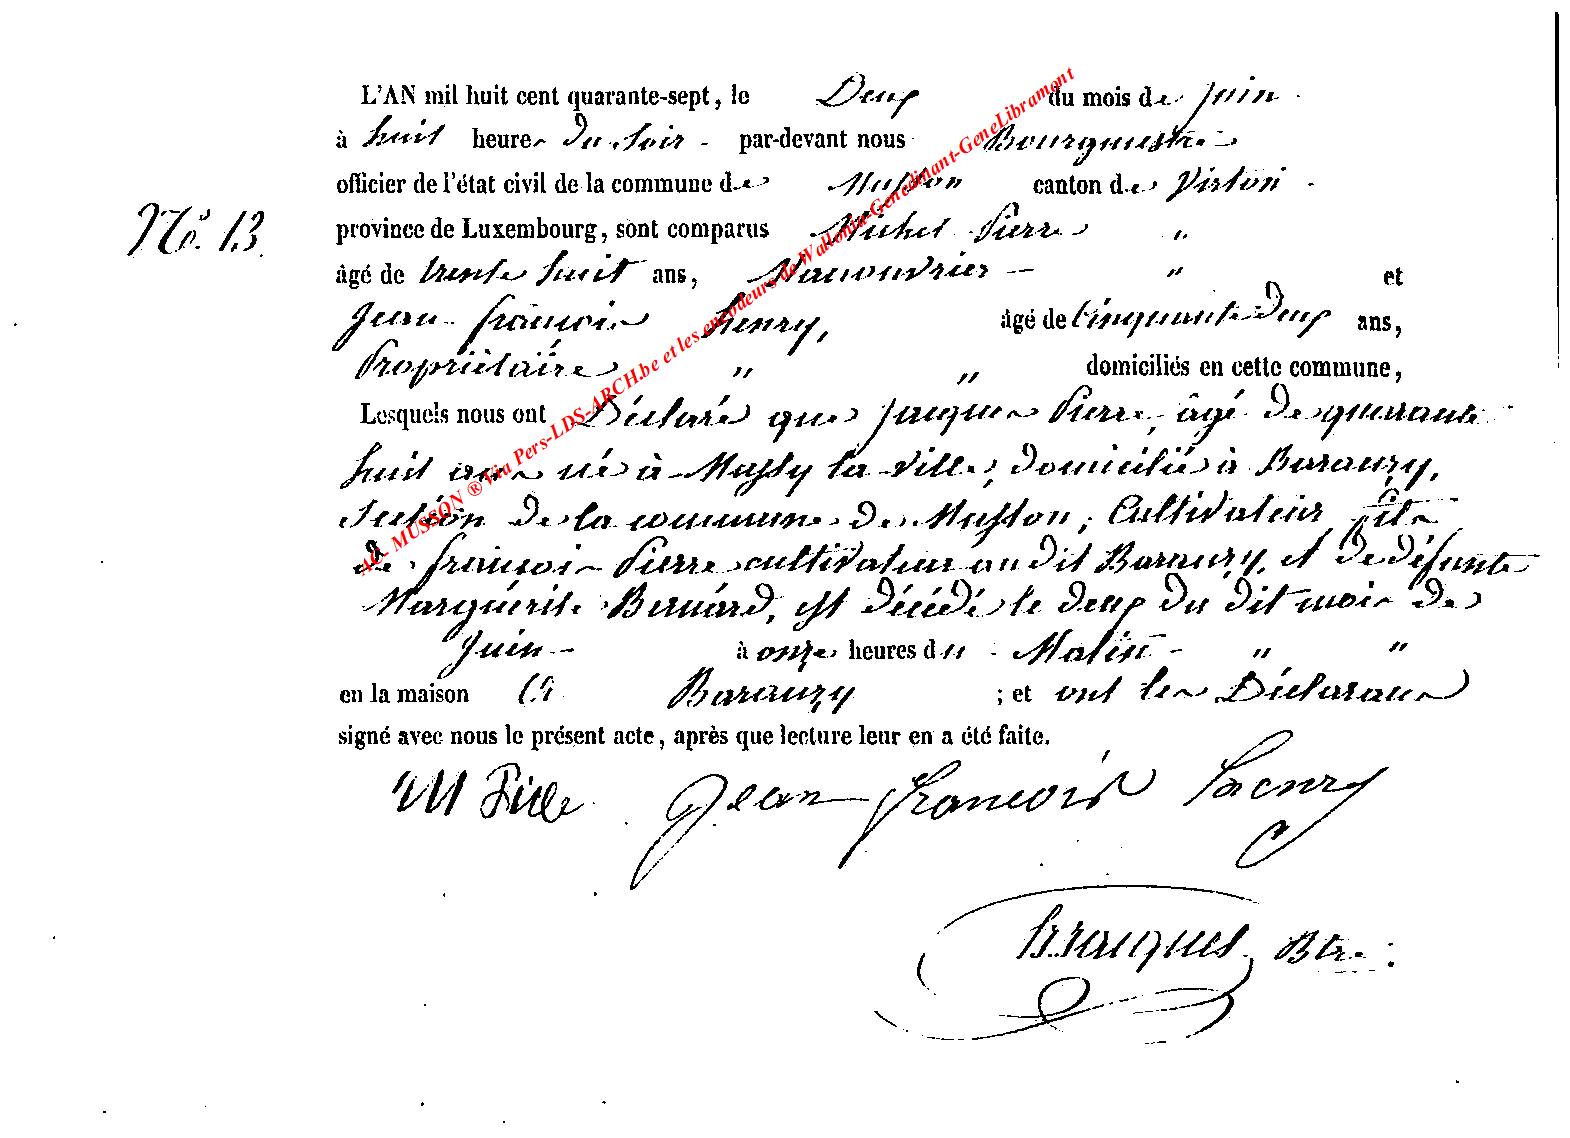 L'AN mil huit cent quarante-sept, le Deux du mois de juin
à huit heures du Soir par-devant nous Bourgmestre
officier de l'état civil de la commune de Musson canton de Virton
N.° 13.
province de Luxembourg, sont comparus Michel Pierre "
âgé de trente huit ans, Manouvrier " et
Jean françois henry, âgé de Cinquante Deux ans,
Propriétaire " " domiciliés en cette commune,
Lesquels nous ont Déclaré que jacques Pierre, âgé de quarante
huit ans né à Mussy la ville, domicilié à Baranzy,
Section de la commune de Musson, Cultivateur fils
de françois Pierre cultivateur au dit Baranzy, et de défunte
Marguérite Bernard, est décédé le deux du dit mois de
Juin à onze heures du Matin " "
en la maison à Baranzy ; et ont les Déclarans
signé avec nous le présent acte, après que lecture leur en a été faite.
M Jean françois henry
Btre.
AC- MUSSON ® Via Pers-LDS-ARCH.be et les encodeurs de Wallonia-Genedinant-GeneLibramont